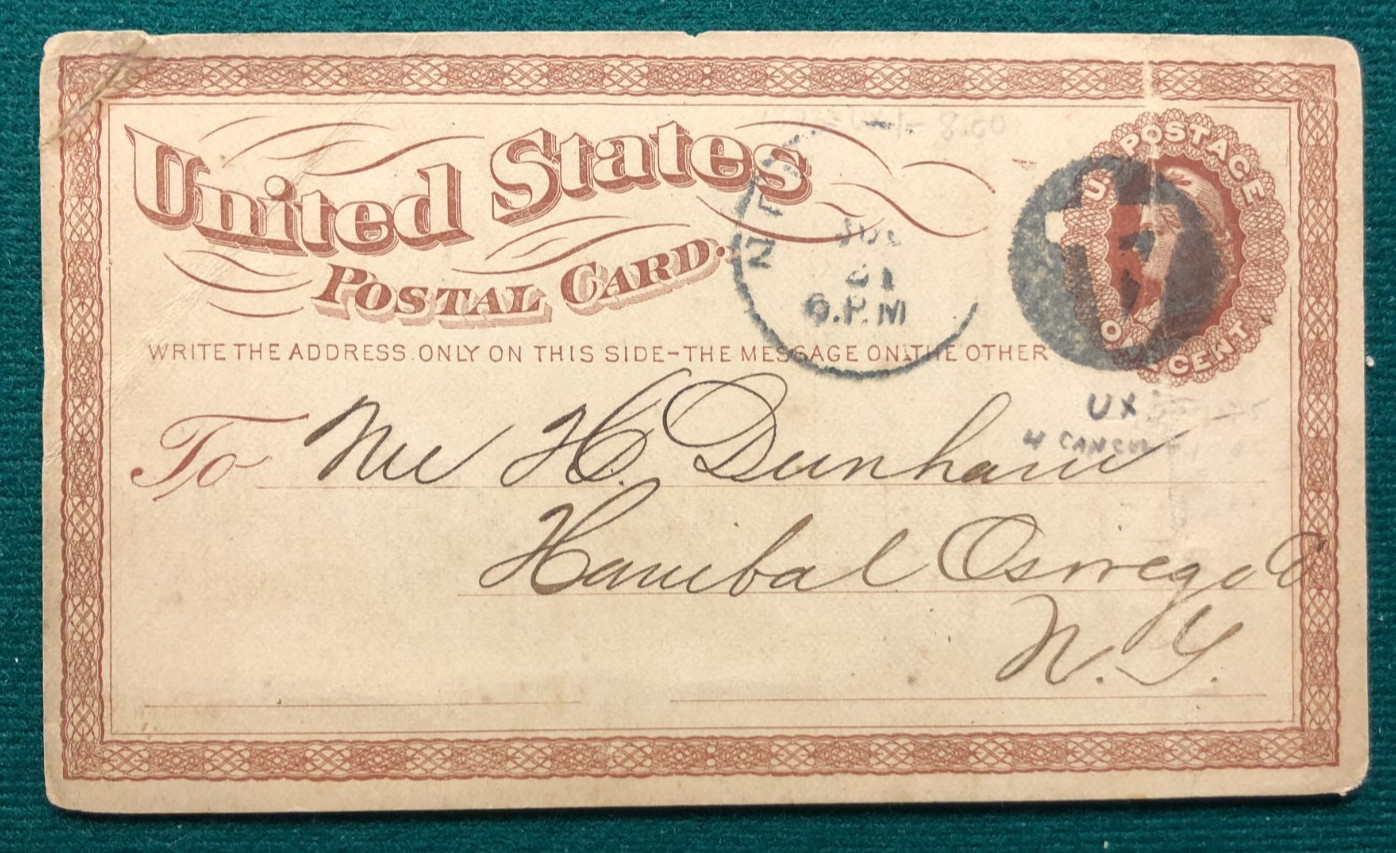 United States
POSTAL CARD.
WRITE THE ADDRESS ONLY ON THIS SIDE-THE MESSAGE ON THE OTHER
U POSTAGE
O CENT
N
31
6.P.M
UX
To H. Dunham
Hanibal Oswego Co
N.Y.